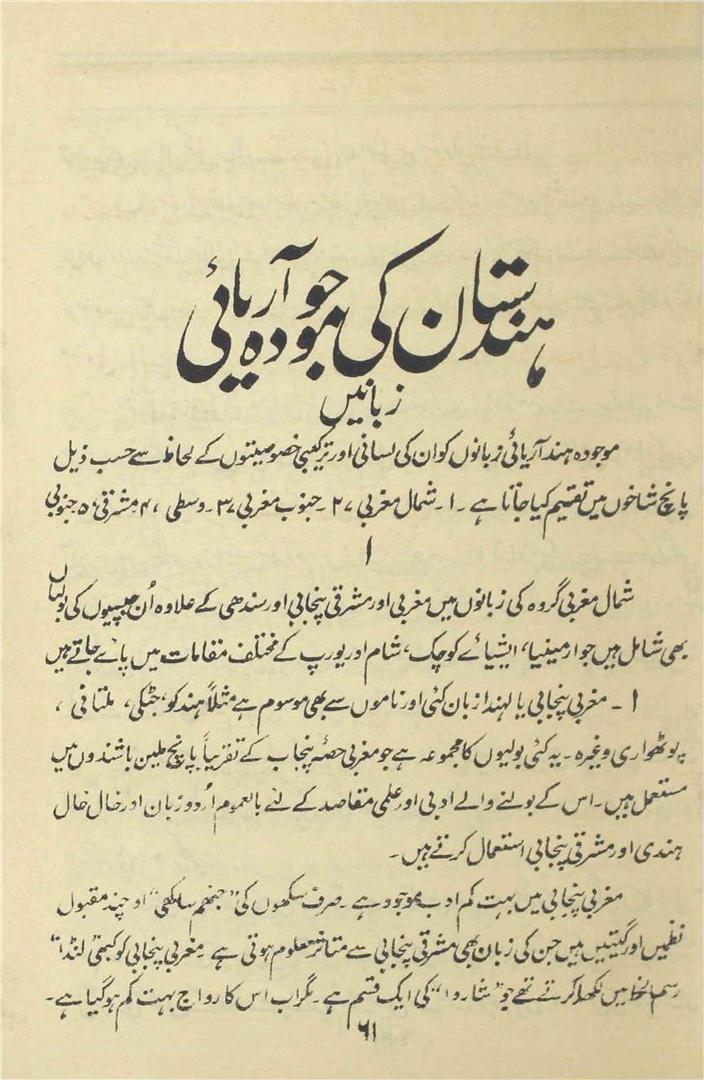 ہندستان کی موجودہ آریائی
زبانیں
موجودہ ہند آریائی زبانوں کو ان کی لسانی اور ترکیبی خصوصیتوں کے لحاظ سے حسب ذیل
پانچ شاخوں میں تقسیم کیا جاتا ہے ۔ ۱۔ شمال مغربی ،۲۔ جنوب مغربی ،۳۔ وسطی ،۴۔ مشرقی ،۵۔ جنوبی
۱
شمال مغربی گروہ کی زبانوں میں مغربی اور مشرقی پنجابی اور سندھی کے علاوہ اُن جپسیوں کی بولیاں
بھی شامل ہیں جو ارمینیا، ایشیائے کوچک، شام اور یورپ کے مختلف مقامات میں پائے جاتے ہیں
۱ ۔ مغربی پنجابی یا لہندا زبان کئی اور ناموں سے بھی موسوم ہے مثلاً ہندکو، جٹکی، ملتانی ،
پوٹھواری وغیرہ ۔ یہ کئی بولیوں کا مجموعہ ہے جو مغربی حصۂ پنجاب کے تقریباً پانچ ملین باشندوں میں
مستعمل ہیں۔ اس کے بولنے والے ادبی اور علمی مقاصد کے لئے بالعموم اُردو زبان اور خال خال
ہندی اور مشرقی پنجابی استعمال کرتے ہیں ۔
مغربی پنجابی میں بہت کم ادب موجود ہے ۔ صرف سکھوں کی "جنھم ساکھی" او چند مقبول
نظمیں اور گیتیں ہیں جن کی زبان بھی مشرقی پنجابی سے متاثر معلوم ہوتی ہے ۔ مغربی پنجابی کو کبھی "لنڈا"
رسم الخط میں لکھا کرتے تھے جو "شاردا" کی ایک قسم ہے ۔ مگر اب اس کا رواج بہت کم ہو گیا ہے ۔
۶۱